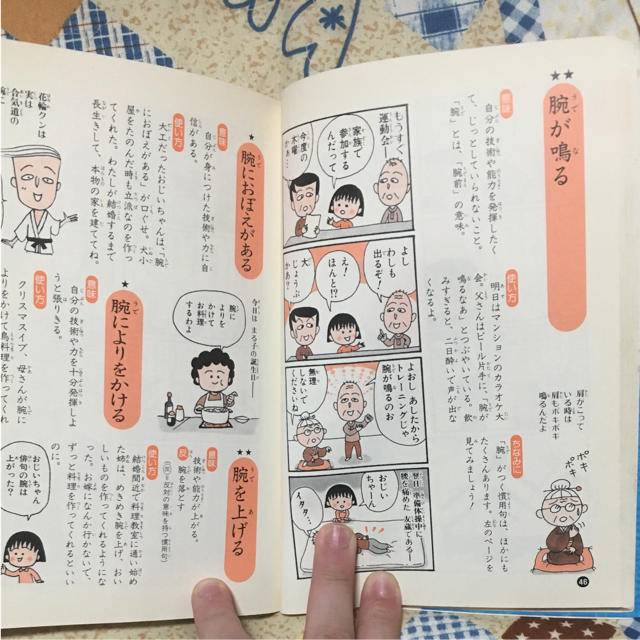 ★★
腕が鳴る
意味
自分の技術や能力を発揮したく
て、じっとしていられないこと。
「腕」とは、「腕前」の意味。
使い方
明日はマンションのカラオケ大
会。父さんはビール片手に、「腕が
鳴るなあ」とつぶやいている。飲
みすぎると、二日酔いで声が出な
くなるよ。
肩がこって
いる時は
肩もポキポキ
鳴るんだよ
ちなみに
「腕」がつく慣用句は、ほかにも
たくさんあります。左のページを
見てみましょう!
ポキ
ポキ
46
もうすぐ
運動会
家族で
参加する
んだって
今度の
木曜
かぁ!
よし
わしも
出るぞ!
え!
ほんと!?
大
じょうぶ
かあ?
よおし あしたから
トレーニングじゃ
腕が鳴るのお
無理
しないで
くださいね
翌日、準備体操中に
腰を痛めた 友蔵である―
おじい
ちゃーん
イタタ…
★
腕におぼえがある
意味
自分が身につけた技術や力に自
信がある。
使い方
大工だったおじいちゃんは、「腕
におぼえがある」が口ぐせ。犬小
屋をたのんだ時も立派なのを作っ
てくれた。わたしが結婚するまで
長生きして、本物の家を建ててね。
花輪クンは
実は
合気道の
今日は まる子の誕生日―
腕に
よりを
かけて
お料理
するわよ
★
腕によりをかける
意味
自分の技術や力を十分発揮しよ
うと張りきる。
使い方
クリスマスイブ、母さんが腕に
よりをかけて鳥料理を作ってくれ
のに。
おじいちゃん
俳句の腕は
上がった?
★
腕を上げる
意味
技術や能力が上がる。
反 腕を落とす
(反=反対の意味を持つ慣用句)
使い方
結婚間近で料理教室に通い始め
た姉は、めきめき腕を上げ、おい
しいものを作ってくれるようにな
った。お嫁になんか行かないで、
ずっと料理を作ってくれるといい